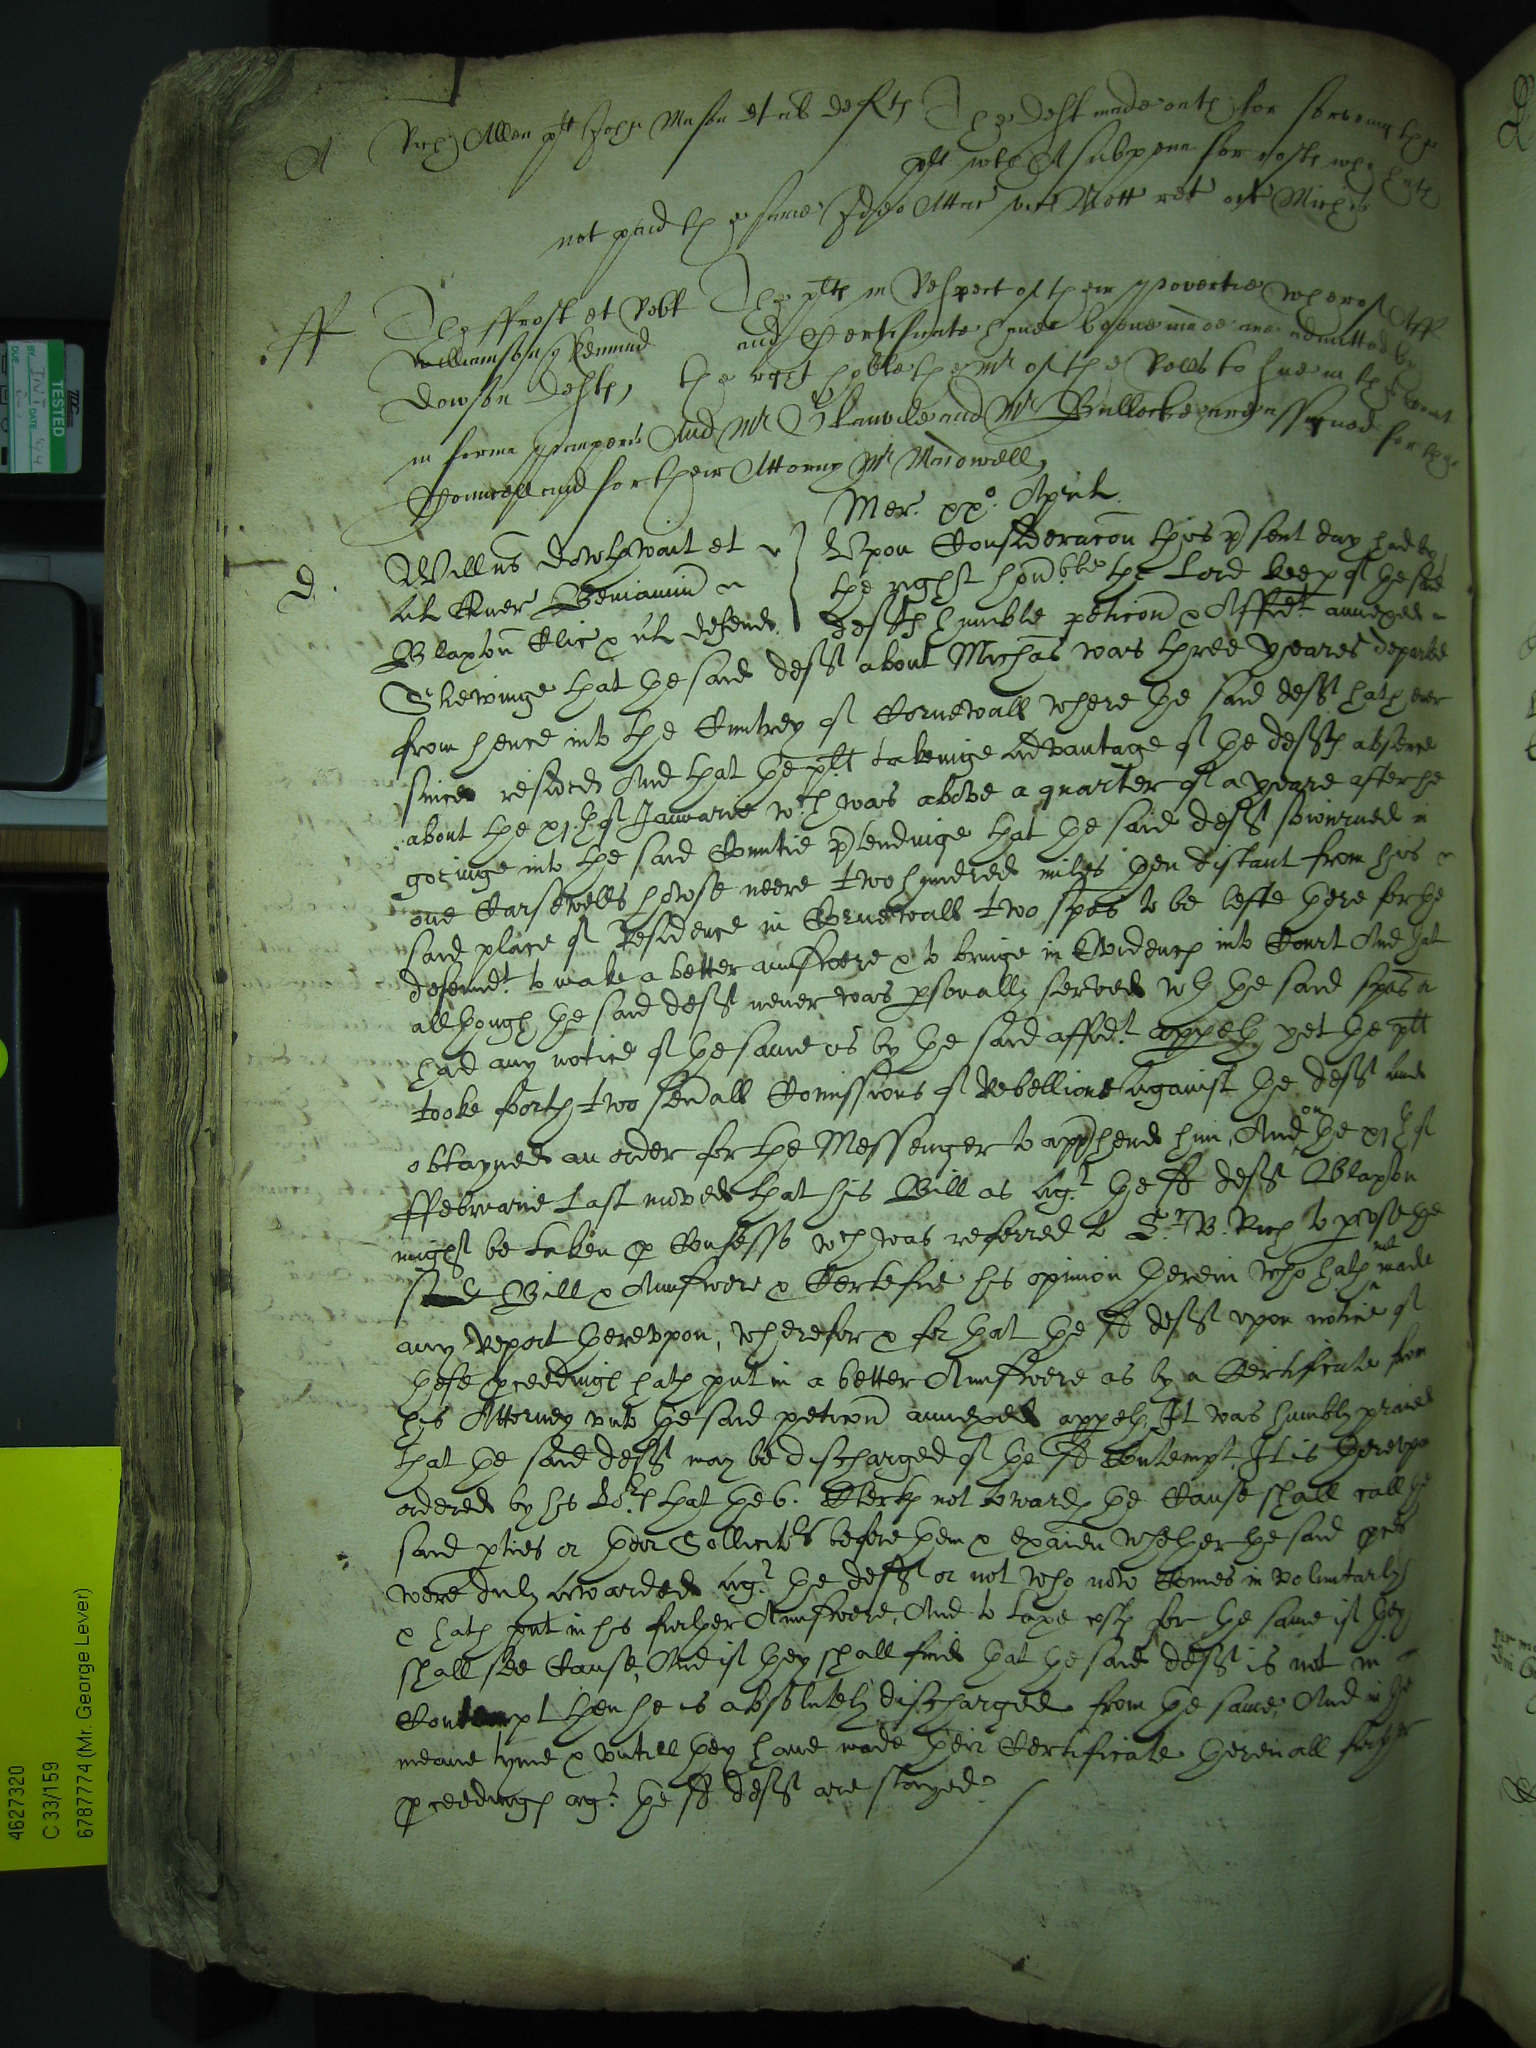 A Rich Allen plt John Mason et al defts The deft made oath for serveing the
plt with A subpena for costs who hath
not paid the same Ideo Attac vic Nott ret oct Michis
ff Tho ffrost et Robt The plts in Respect of their povertie whereof Aff
Williamson Edmund and Certificate have beene made are admitted by
Dowson defts, the right hoble the Mr of the Rolls to sue in this Court
in forma pauperis And Mr Glanvile and Mr Bullocke are assigned for their
Councell and for their Attorny Mr Maidwell,
Mer. xxo. April.
D. Willus Dowthwait et Upon Consideracon this psent day had by
al Quer Beniamin the right honoble the Lord keep of the said
Blaxton Clic & al defend. defts humble peticon & Affidt annexed
Shewinge that the said deft about Michas was three yeares departed
from hence into the Cuntrey of Cornewall where the said deft hath ever
since resided And that the plt takeinge advantage of the defts absence
about the xj.th of Januarie wch was above a quarter of a yeare after the
goeinge into the said Countie ptendinge that the said deft soiourned in
one Carswells howse neere two hundred miles then distant from his
said place of Residence in Cornewall two spas to be lefte there for the
defendt. to make a better aunswere & to bringe in Evidences into Court And that
although the said deft never was psonally served with the said spas or
had any notice of the same as by the said affidt. appeth yet the plt
tooke forth two severall Comissions of Rebellion against the deft and
obtayned an order for the Messenger to apphend him, And on the xjth of
ffebruarie last moved that his Bill as agt. the sd deft Blaxton
might be taken p Confesso wch was referred to Sr. R. Rich to peruse the
said Bill & Aunswere & Certefie his opinion therein who hath not made
any Report thereupon, wherefor & for that the sd deft upon notice of
these pceedings hath put in a better Aunswere as by a Certificate from
his Attorney unto the said peticon annexed appeth, It was humbly praied
that the said deft may be discharged of the sd Contempt. It is thereupon
ordered by his Lopp that the 6. Clerks not towards the Cause shall call the
said pties or their Sollicitors before them & examen whether the said pces
were duly awarded agt. the deft or not who now Comes in voluntarly
& hath put in his further Aunswere, And to taxe costs for the same if they
shall see Cause, And if they shall finde that the said deft is not in
Contempt then he is absolutely discharged from the same, And in the
meane tyme & untill they have made their Certificate therein all further
pceedings agt. the sd deft are stayed.
TESTED
BY
DATE
DUE
4627320
C 33/159
6787774 (Mr. George Lever)